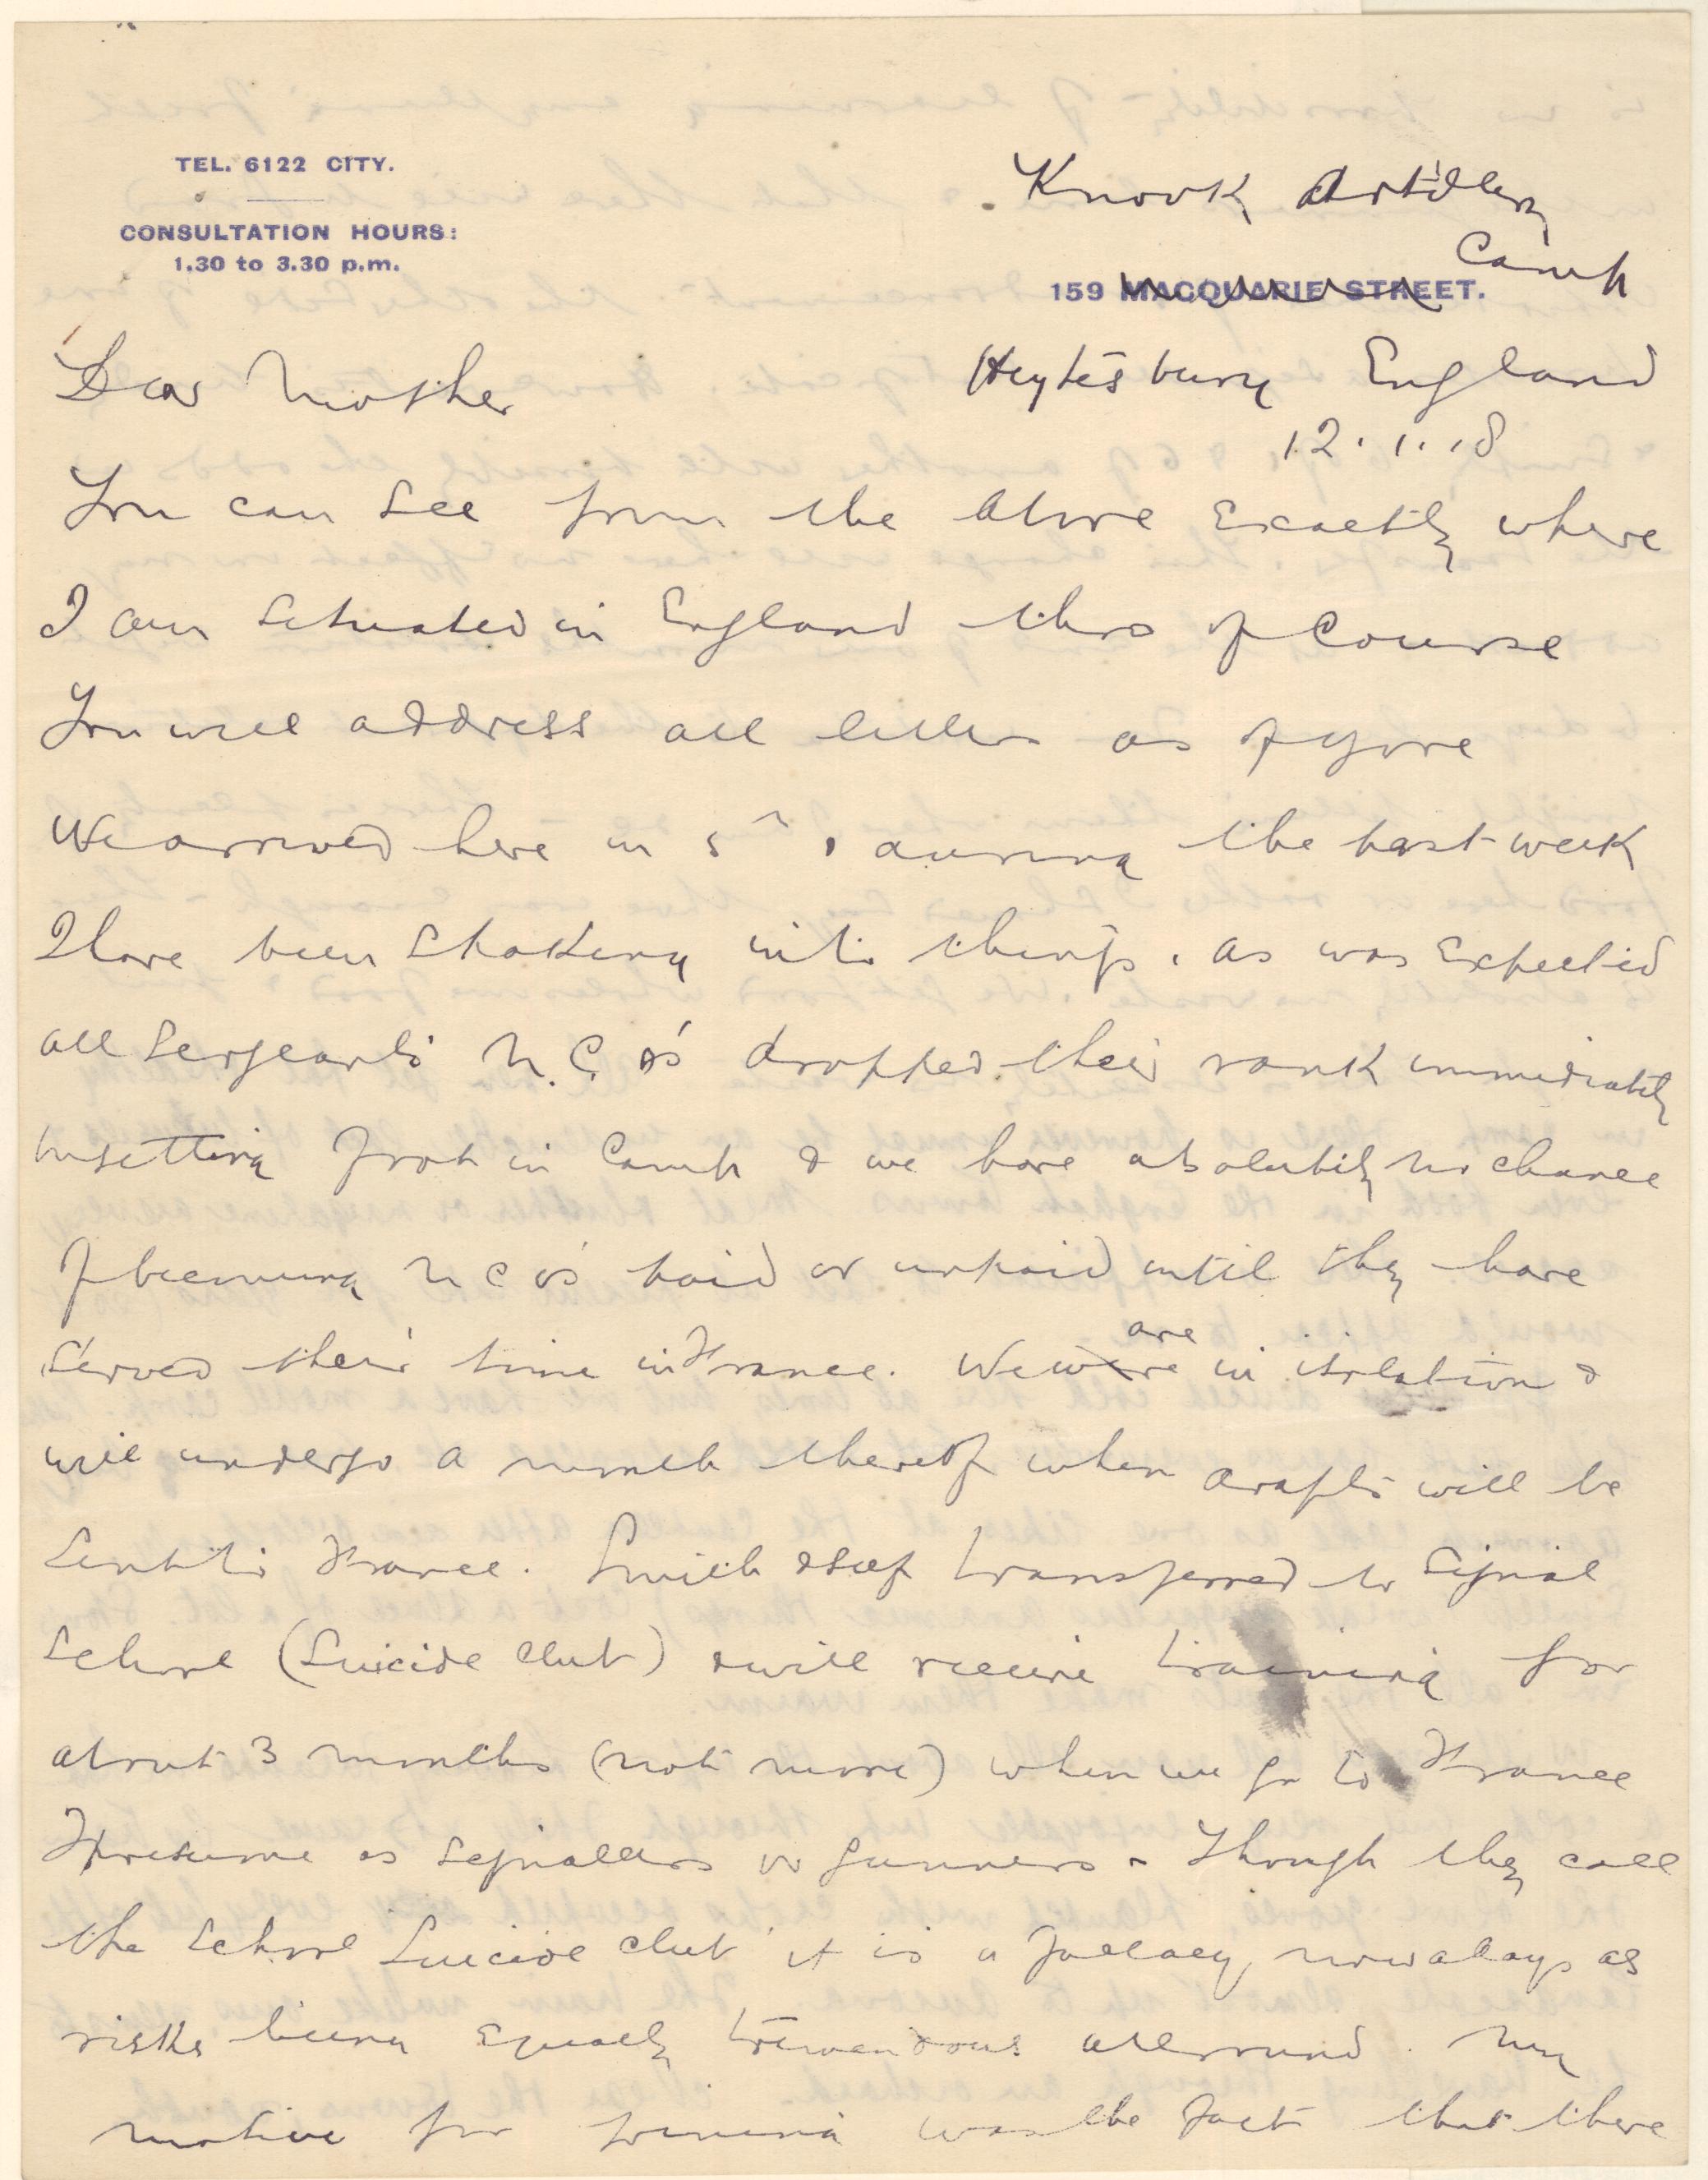 TEL. 6122 CITY.
CONSULTATION HOURS:
1.30 to 3.30 p.m.
Knook Artillery
Camp
159 MACQUARIE STREET.
Heytesbury England
12.1.18
Dear Mother
You can see from the above exactly where
I am situated in England tho of course
You will address all letters as of yore
We arrived here on 5th & during the past week
I have been shaking into things. As was expected
all Sergeants N.C.O's dropped their rank immediately
on setting foot in Camp & we have absolutely no chance
of becoming N C O's paid or unpaid until they have
served their time in France. We were are in isolation &
will undergo a month thereof when drafts will be
sent to France. Smith & self transferred to Signal
School (Suicide Club) & will receive training for
about 3 months (not more) when we go to France
I presume as signallers or gunners. Though they call
the School Suicide Club it is a fallacy nowadays as
risks being equally tremendous all round. My
motive for joining was the fact that there